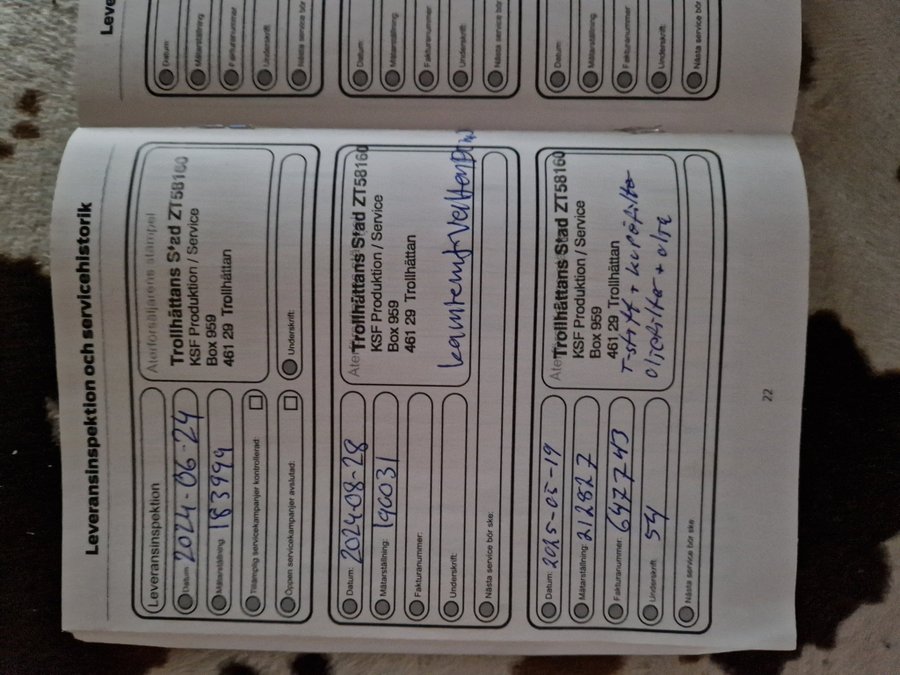 Leveransinspektion och servicehistorik
Leveransinspektion
Datum: 2024-06-24
Mätarställning: 183999
Tillämplig servicekampanjer kontrollerad:
Öppen servicekampanjer avslutad:
Återförsäljarens stämpel
Trollhättans Stad ZT58160
KSF Produktion / Service
Box 959
461 29 Trollhättan
Underskrift:
Datum: 2024-08-28
Mätarställning: 190031
Fakturanummer:
Underskrift:
Nästa service bör ske:
Trollhättans Stad ZT58160
KSF Produktion / Service
Box 959
461 29 Trollhättan
kamremt
Datum: 2025-05-19
Mätarställning: 212827
Fakturanummer: 6477743
Underskrift: 54
Nästa service bör ske
Trollhättans Stad ZT58160
KSF Produktion / Service
Box 959
461 29 Trollhättan
+ kupéfilter
oljefilter + olja
22
Leve
Datum:
Mätarställning:
Fakturanummer:
Underskrift:
Nästa service bör
Datum:
Mätarställning:
Fakturanummer:
Underskrift:
Nästa service bör
Datum:
Mätarställning:
Fakturanummer:
Underskrift:
Nästa service bör